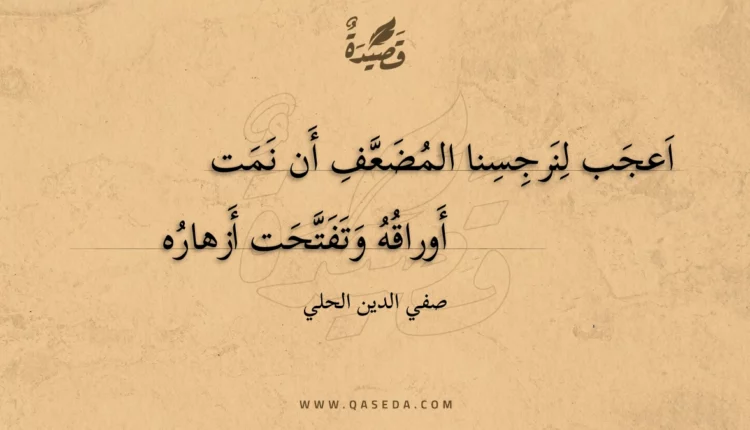 قَصِيْدَةٌ
اَعجَب لِنَرجِسِنا المُضَعَّفِ أَن نَمَت
أَوراقُهُ وَتَفَتَّحَت أَزهارُه
صفي الدين الحلي
WWW.QASEDA.COM